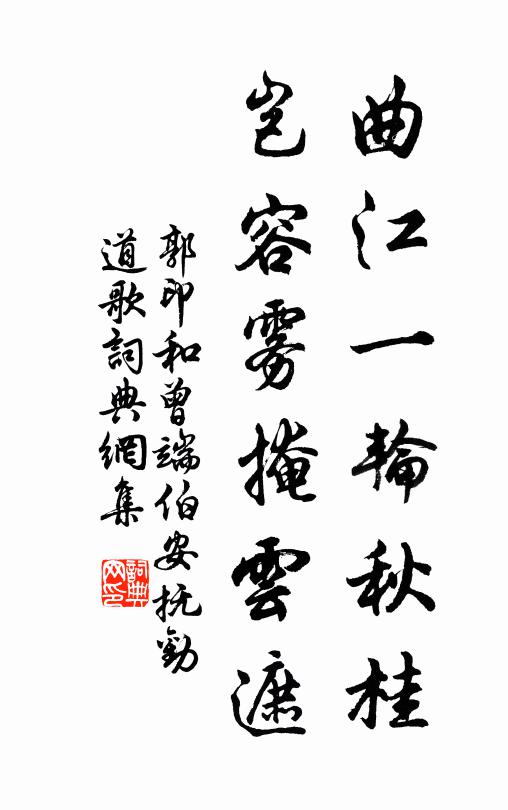 曲江一輪秋桂
豈容雾掩雲遮
郭印和曾端伯安抚勸
道歌詞典網集
詞典
网印